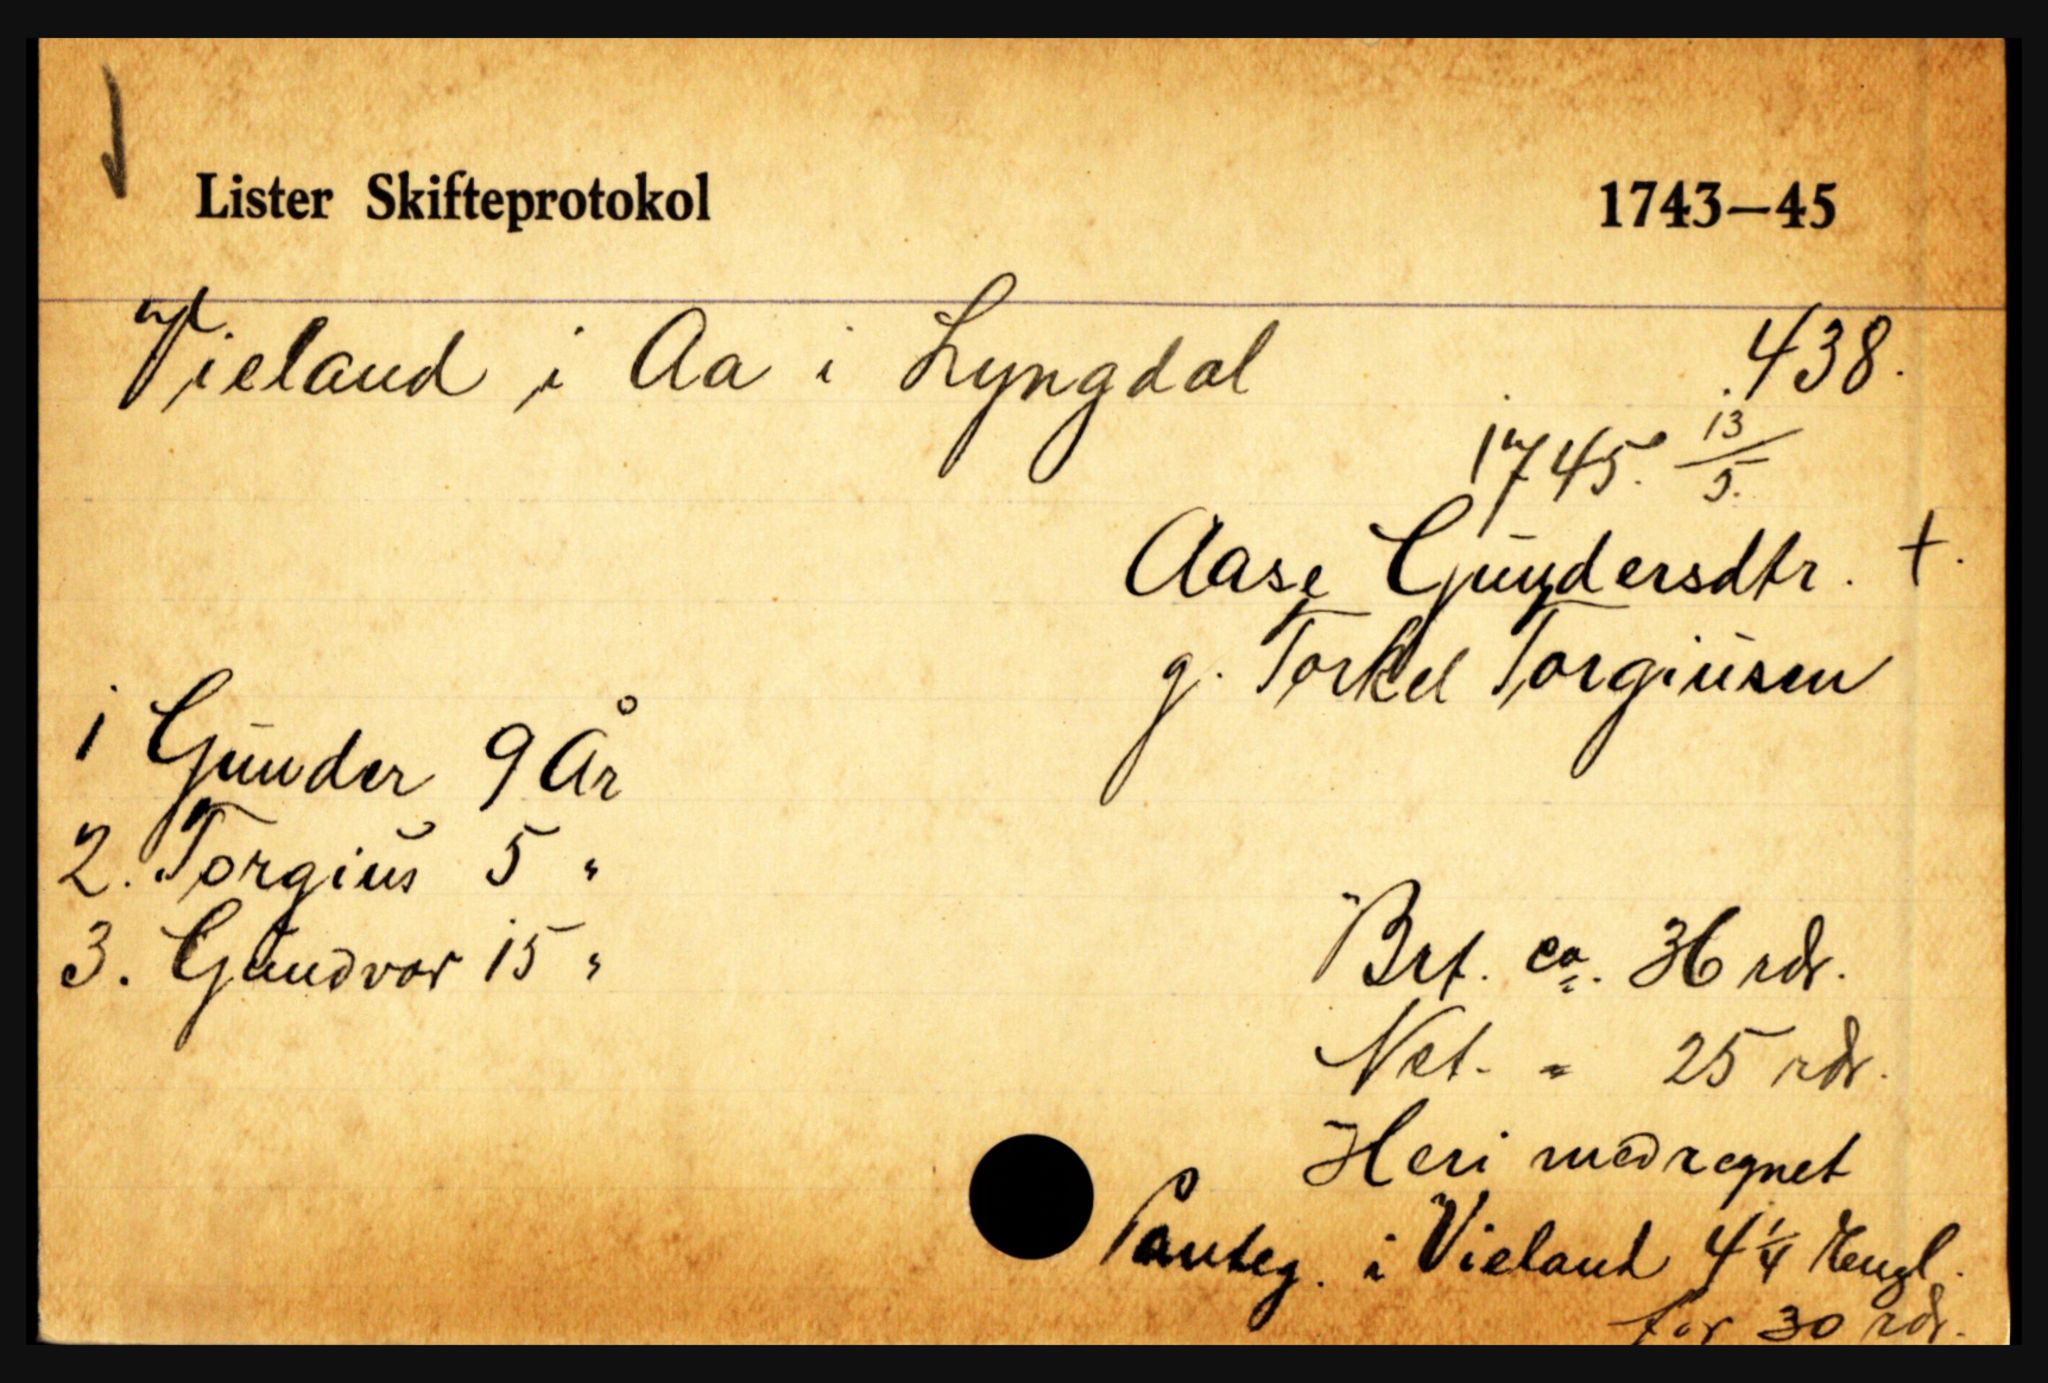 Lister Skifteprotokol 1743—45
Vieland i Aa i Lyngdal 438.
1745. 13/5.
Aase Gundersdtr. +.
g. Torkel Torgiusen
1 Gunder 9 År
2. Torgius 5 "
3. Gundvor 15 "
Brt. ca. 36 rdr.
Net. " 25 rdr.
Heri medregnet
Panteg. i Vieland 4 1/4 Engl.
for 30 rdr.